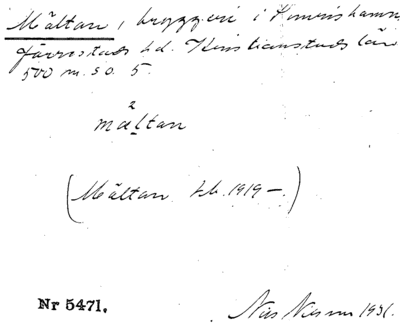 Mältan, bryggeri i Simrishamn,
Järrestads hd. Kristianstads län
500 m. s o. 5.
mæltan
(Mältan Hb. 1919 –.)
Nr 5471.
Nils Nilsson 1931.